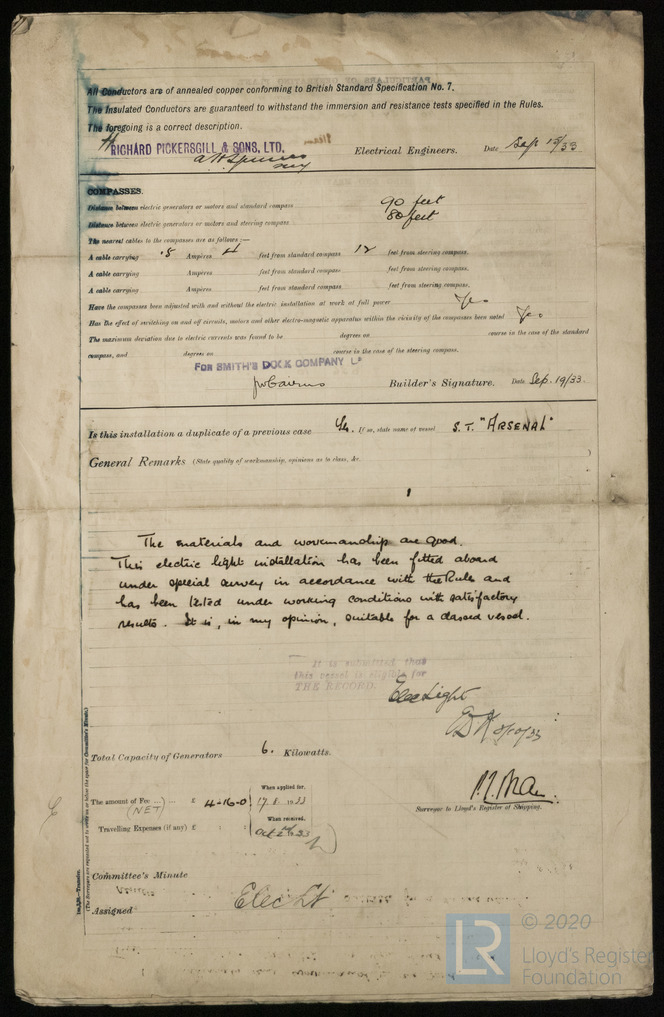 All Conductors are of annealed copper conforming to British Standard Specification No. 7.
The Insulated Conductors are guaranteed to withstand the immersion and resistance tests specified in the Rules.
The foregoing is a correct description.
RICHARD PICKERSGILL & SONS, LTD.
Electrical Engineers. Date Sep 15/33
COMPASSES.
Distance between electric generators or motors and standard compass 90 feet
Distance between electric generators or motors and steering compass 80 feet
The nearest cables to the compasses are as follows:—
A cable carrying .5 Ampères 4 feet from standard compass 12 feet from steering compass.
A cable carrying Ampères feet from standard compass feet from steering compass.
A cable carrying Ampères feet from standard compass feet from steering compass.
Have the compasses been adjusted with and without the electric installation at work at full power Yes
Has the effect of switching on and off circuits, motors and other electro-magnetic apparatus within the vicinity of the compasses been noted Yes
The maximum deviation due to electric currents was found to be degrees on course in the case of the standard
compass, and degrees on course in the case of the steering compass.
FOR SMITH'S DOCK COMPANY LD
Builder's Signature. Date Sep. 19/33.
Is this installation a duplicate of a previous case Yes. If so, state name of vessel S.T. "ARSENAL"
General Remarks (State quality of workmanship, opinions as to class, &c.
The materials and workmanship are good.
This electric light installation has been fitted aboard
under special survey in accordance with the Rules and
has been tested under working conditions with satisfactory
results. It is, in my opinion, suitable for a classed vessel.
It is submitted that
this vessel is eligible for
THE RECORD.
Elec Light
Total Capacity of Generators 6. Kilowatts.
The amount of Fee ... ... £ 4-16-0
(NET)
When applied for,
17.8.1933
When received,
Travelling Expenses (if any) £
Surveyor to Lloyd's Register of Shipping.
Committee's Minute
Assigned Elec Lt
(The Surveyors are requested not to write on or below the space for Committee's Minute.)
© 2020
LR
Lloyd's Register
Foundation